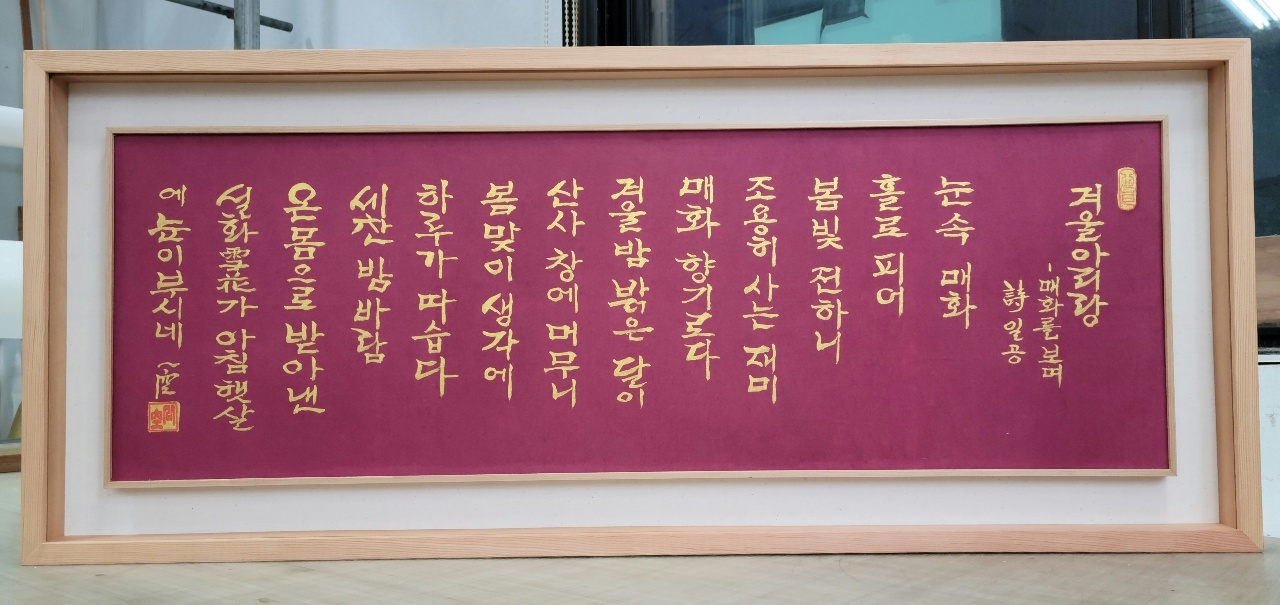 겨울아리랑
-매화를 보며
詩 일공
눈 속 매화
홀로 피어
봄빛 전하니
조용히 사는 재미
매화 향기롭다
겨울밤 밝은 달이
산사 창에 머무니
봄맞이 생각에
하루가 따습다
세찬 밤바람
온몸으로 받아낸
설화雪花가 아침햇살
에 눈이부시네